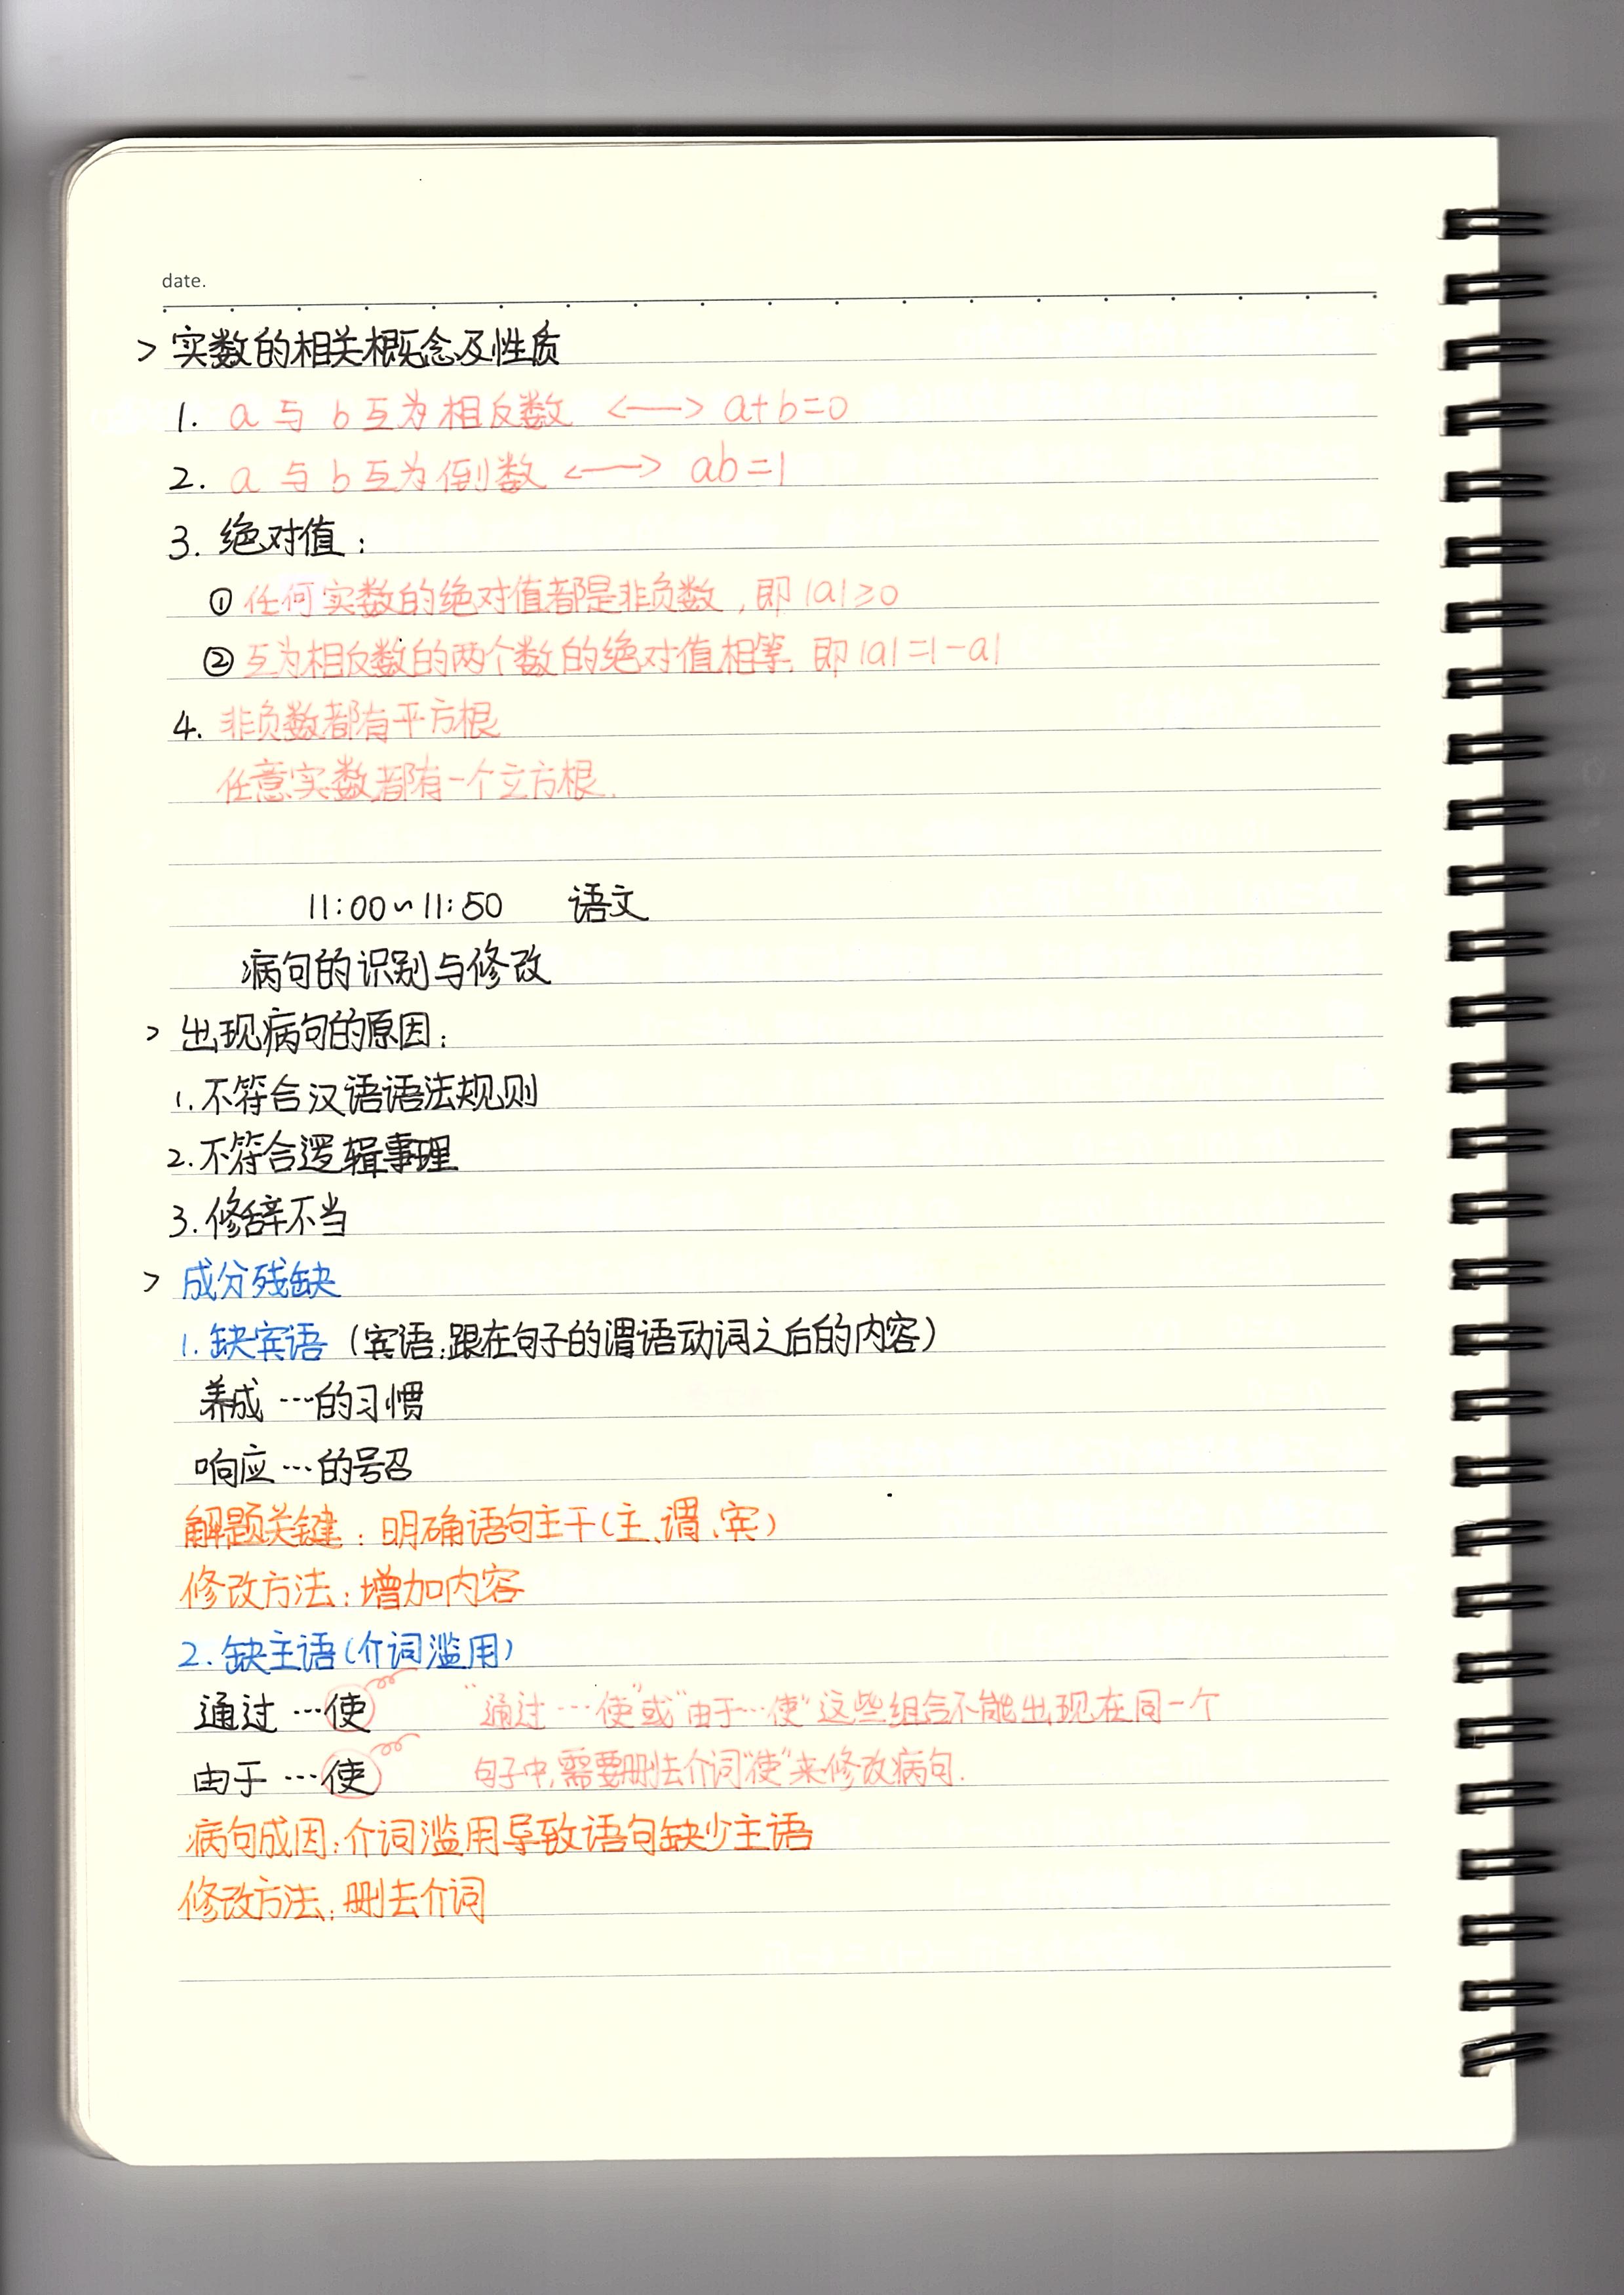 date.
> 实数的相关概念及性质
1. a 与 b 互为相反数 <—> a+b=0
2. a 与 b 互为倒数 <—> ab=1
3. 绝对值：
① 任何实数的绝对值都是非负数，即|a|≥0
② 互为相反数的两个数的绝对值相等，即|a|=|-a|
4. 非负数都有平方根
任意实数都有一个立方根.
11:00~11:50 语文
病句的识别与修改
> 出现病句的原因：
1.不符合汉语语法规则
2.不符合逻辑事理
3.修辞不当
> 成分残缺
1.缺宾语（宾语：跟在句子的谓语动词之后的内容）
养成…的习惯
响应…的号召
解题关键：明确语句主干（主、谓、宾）
修改方法：增加内容
2.缺主语（介词滥用）
通过…使 “通过…使”或“由于…使”这些组合不能出现在同一个
由于…使 句子中，需要删去介词“使”来修改病句.
病句成因：介词滥用导致语句缺少主语
修改方法：删去介词